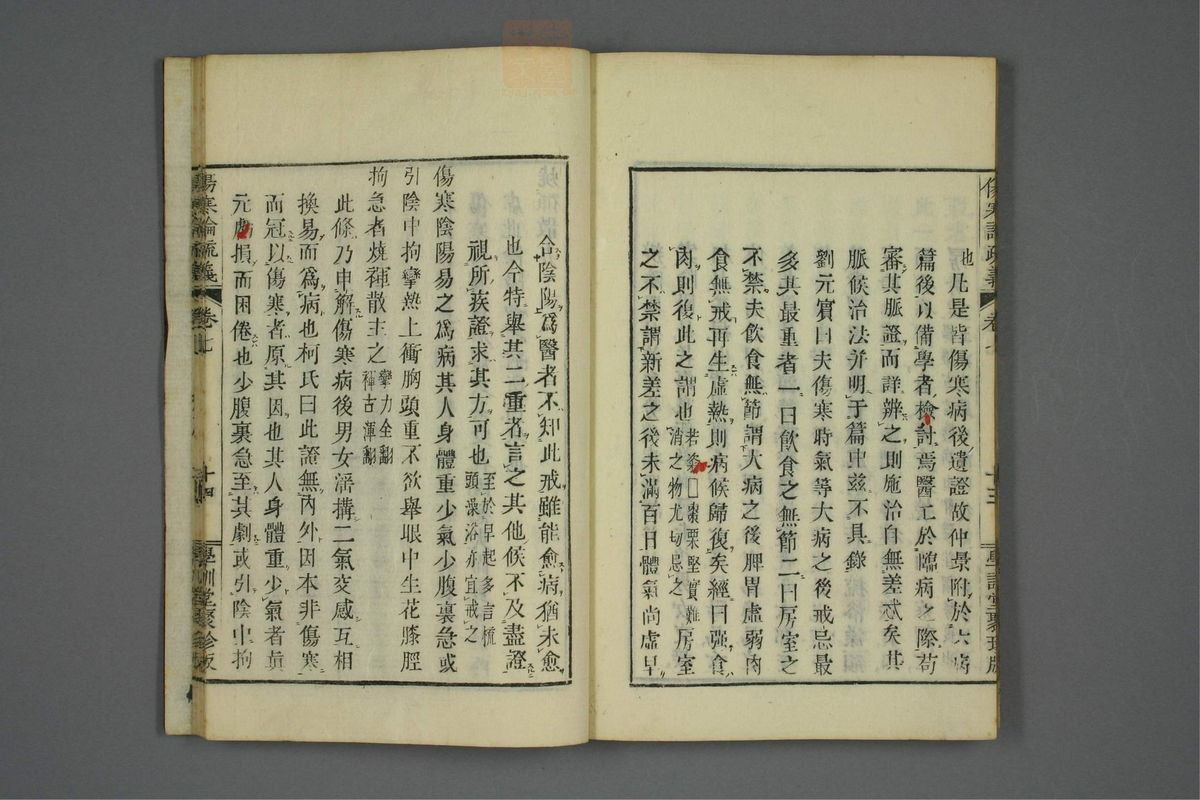 也凡是皆傷寒病後遺證故仲景附於六病
篇後以備學者檢討焉醫工於臨病之際苟
審其脈證而詳辨之則施治自無差忒矣其
脈候治法并明于篇中茲不具錄
劉元賓曰夫傷寒時氣等大病之後戒忌最
多其最重者一曰飲食之無節二曰房室之
不禁夫飲食無節謂大病之後脾胃虛弱肉
食無戒再生虛熱則病候歸復矣經曰强食
肉則復此之謂也若□棗栗堅實難消之物尤切忌之房室
之不禁謂新差之後未滿百日體氣尚虛早
合陰陽爲醫者不知此戒雖能愈病猶未愈
也今特舉其二重者言之其他候不及盡證
視所疾證求其方可也至於早起多言梳頭澡浴亦宜戒之
傷寒陰陽易之爲病其人身體重少氣少腹裏急或
引陰中拘攣熱上衝胸頭重不欲舉眼中生花膝脛
拘急者燒裈散主之攣力全翻裈古渾翻
此條乃申解傷寒病後男女媾搆二氣交感互相
換易而爲病也柯氏曰此證無內外因本非傷寒
而冠以傷寒者原其因也其人身體重少氣者眞
元虧損而困倦也少腹裏急至其劇或引陰中拘
傷寒論疏義
卷七
十四
學訓堂聚珍版